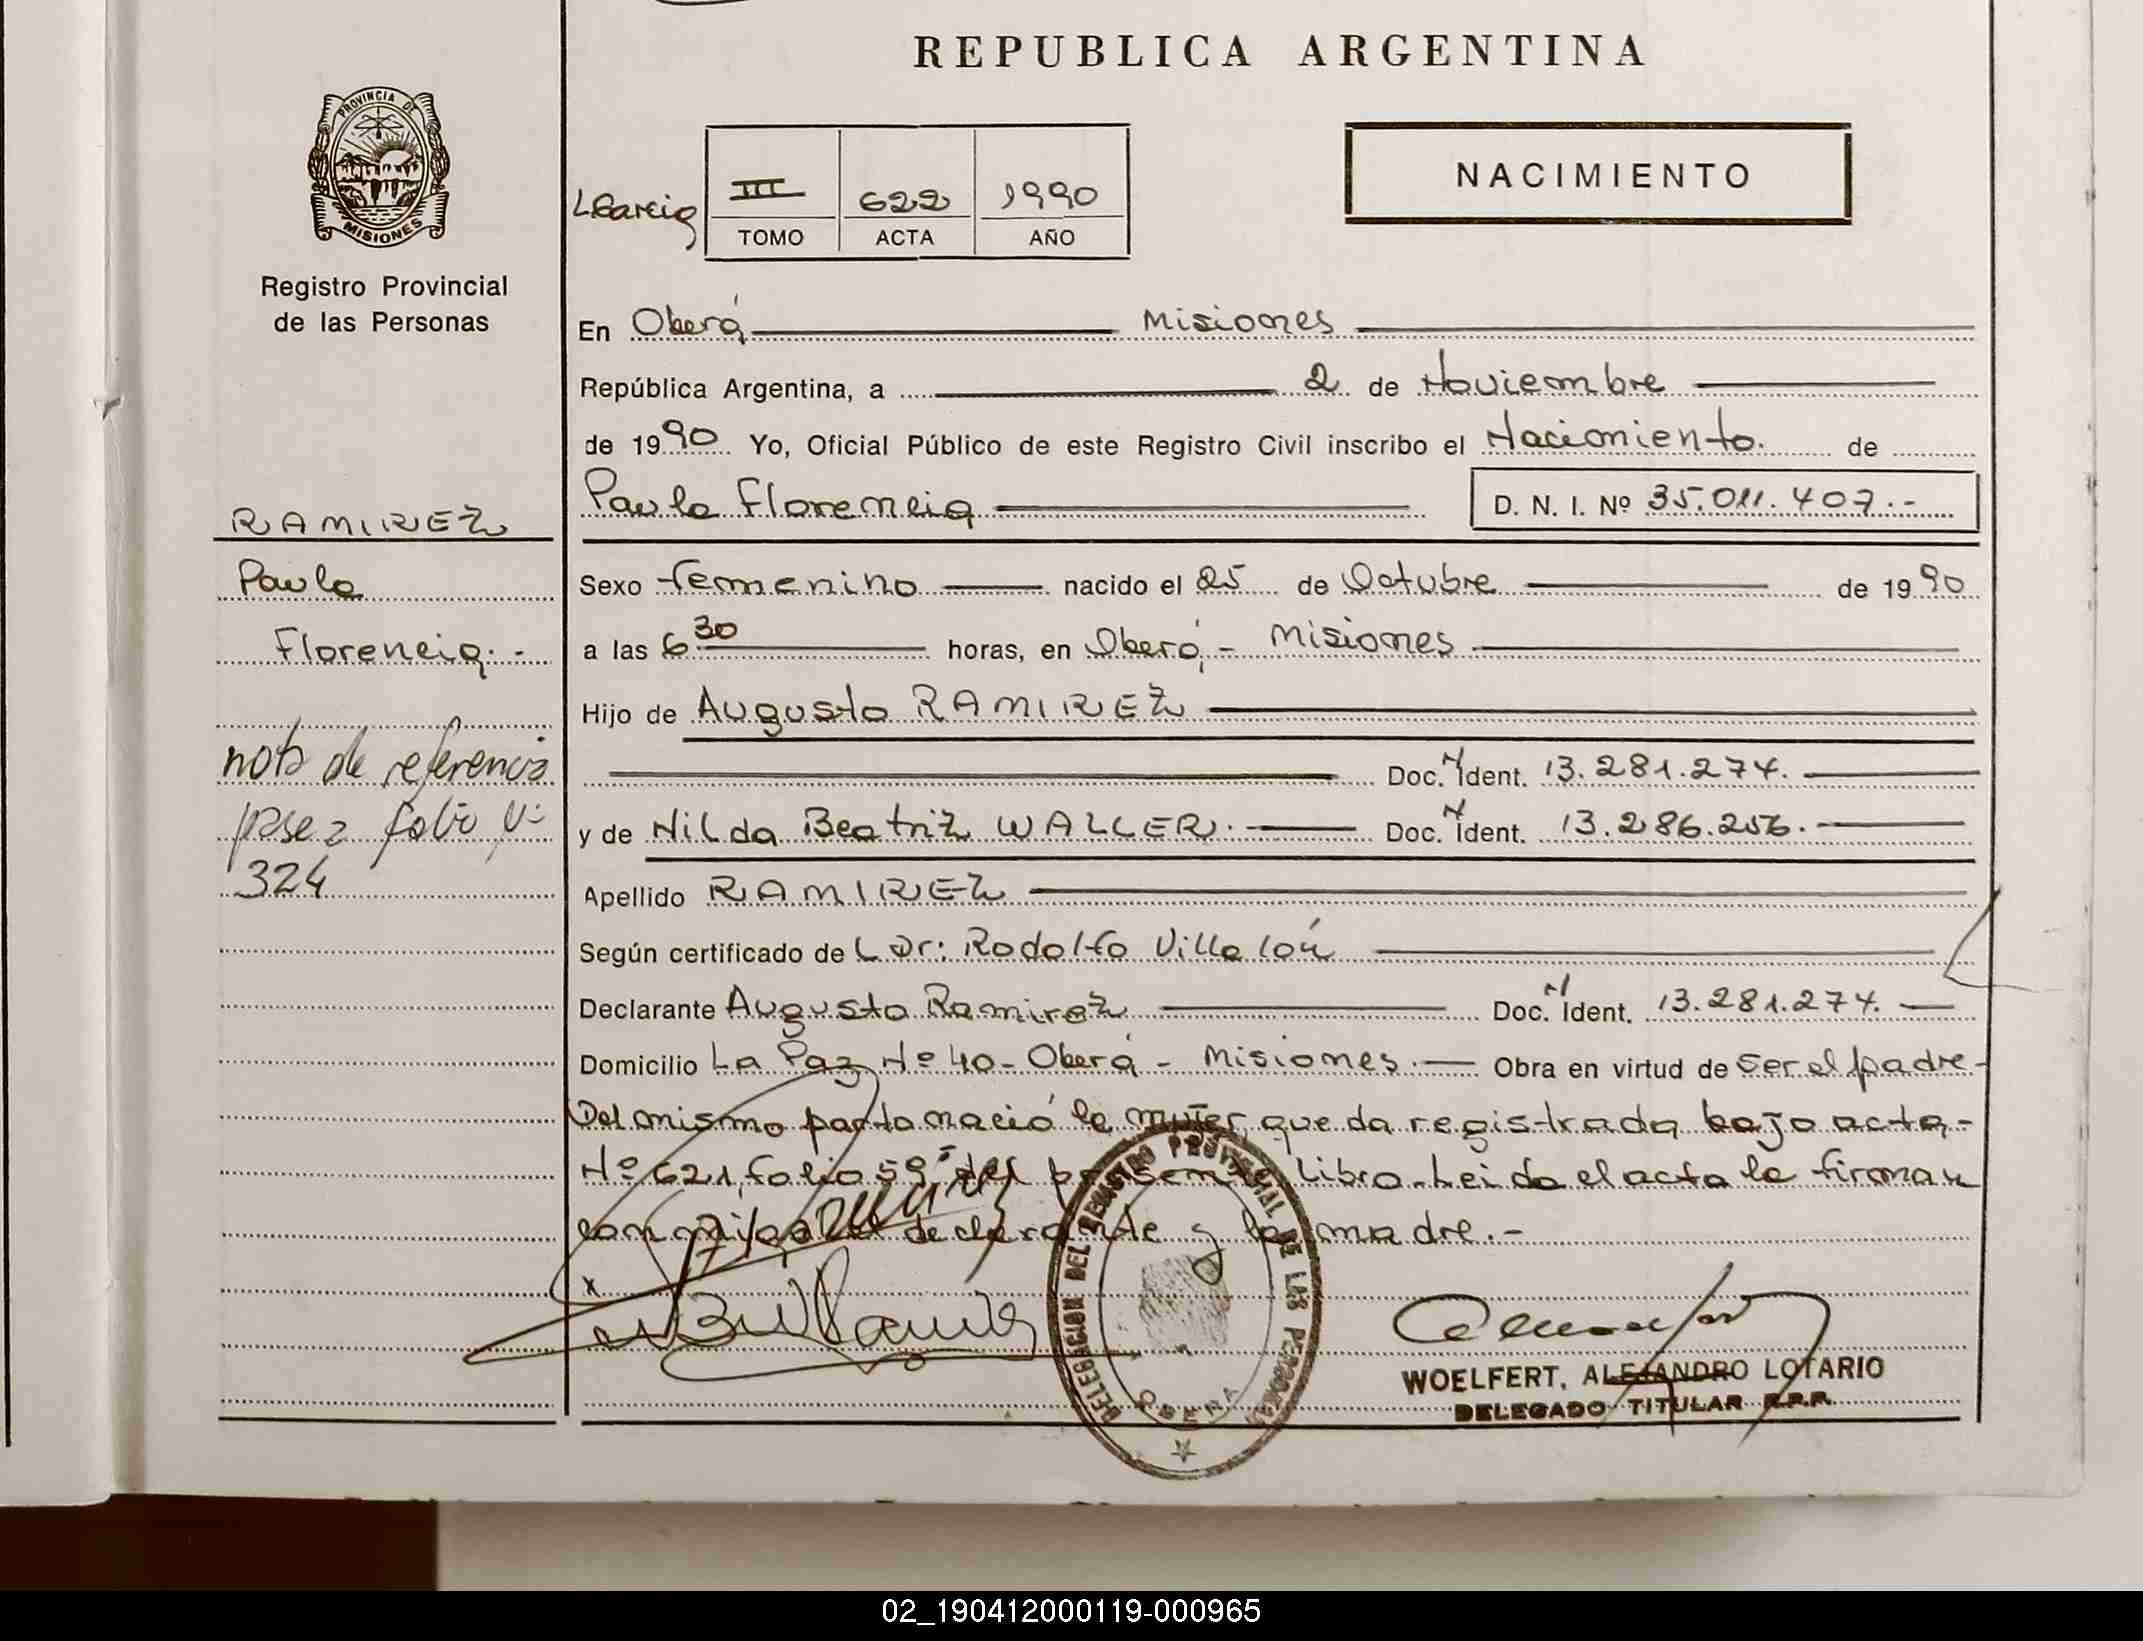 REPUBLICA ARGENTINA
PROVINCIA DE
MISIONES
Registro Provincial
de las Personas
LGarcia
III 622 1990
TOMO ACTA AÑO
NACIMIENTO
En Oberá Misiones
República Argentina, a 2 de Noviembre
de 1990 Yo, Oficial Público de este Registro Civil inscribo el Nacimiento. de
Paula Florencia D. N. I. Nº 35.011.407.-
RAMIREZ
Paula
Florencia.-
nota de referencia
pase a folio Nº
324
Sexo femenino nacido el 25 de Octubre de 1990
a las 6 30 horas, en Oberá, - Misiones
Hijo de Augusto RAMIREZ
Doc. N Ident. 13.281.274.
y de Nilda Beatriz WALLER. Doc. N Ident. 13.286.256.
Apellido RAMIREZ
Según certificado de L Dr: Rodolfo Villalón
Declarante Augusto Ramirez Doc. N Ident. 13.281.274.
Domicilio La Paz Nº 40 - Oberá - Misiones. Obra en virtud de ser el padre-
Del mismo parto nació la mujer que da registrada bajo acta-
Nº 621, folio 59 del presente Libro. Leida el acta la firman
conmigo el declarante y la madre.-
x
DELEGACION DEL REGISTRO PROVINCIAL DE LAS PERSONAS
OBERA
WOELFERT, ALEJANDRO LOTARIO
DELEGADO TITULAR R.P.P.
02_190412000119-000965